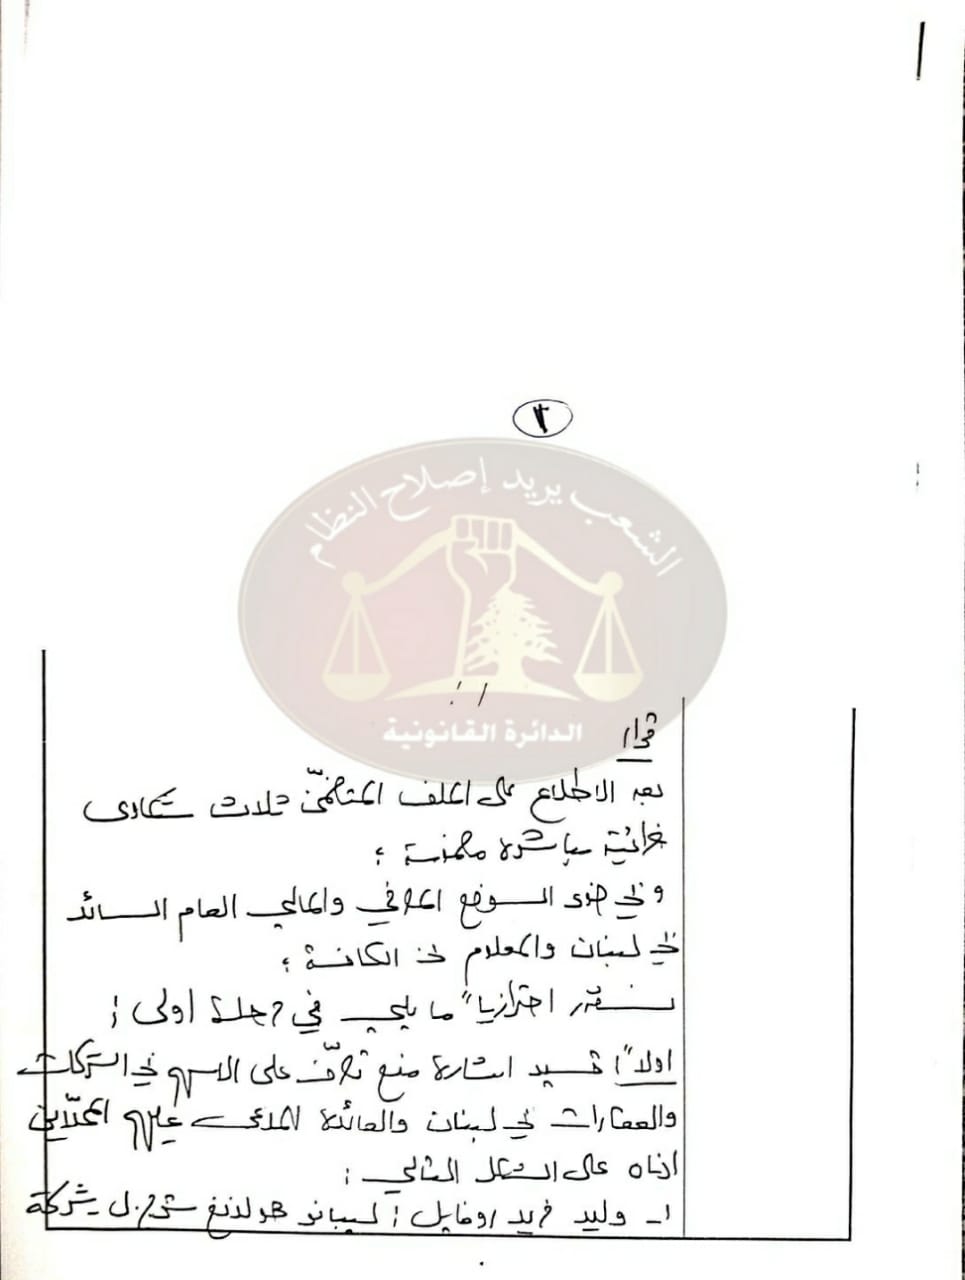 ٢
الشعب يريد إصلاح النظام
الدائرة القانونية
قرار
بعد الاطلاع على الملف المتضمّن ثلاث شكاوى
جزائية مباشرة مضمومة ؛
وفي ضوء الوضع المصرفي والمالي العام السائد
في لبنان والمعلوم لدى الكافة ؛
نقرر احترازياً ما يلي في مرحلة أولى :
اولاً : تسييد اشارة منع تصرّف على الاسهم في الشركات
والعقارات في لبنان والعائدة للمدعى عليهم المحدّدين
ادناه على الشكل التالي :
١- وليد فريد روفايل : ليبانو هولدنغ ش.م.ل شركة